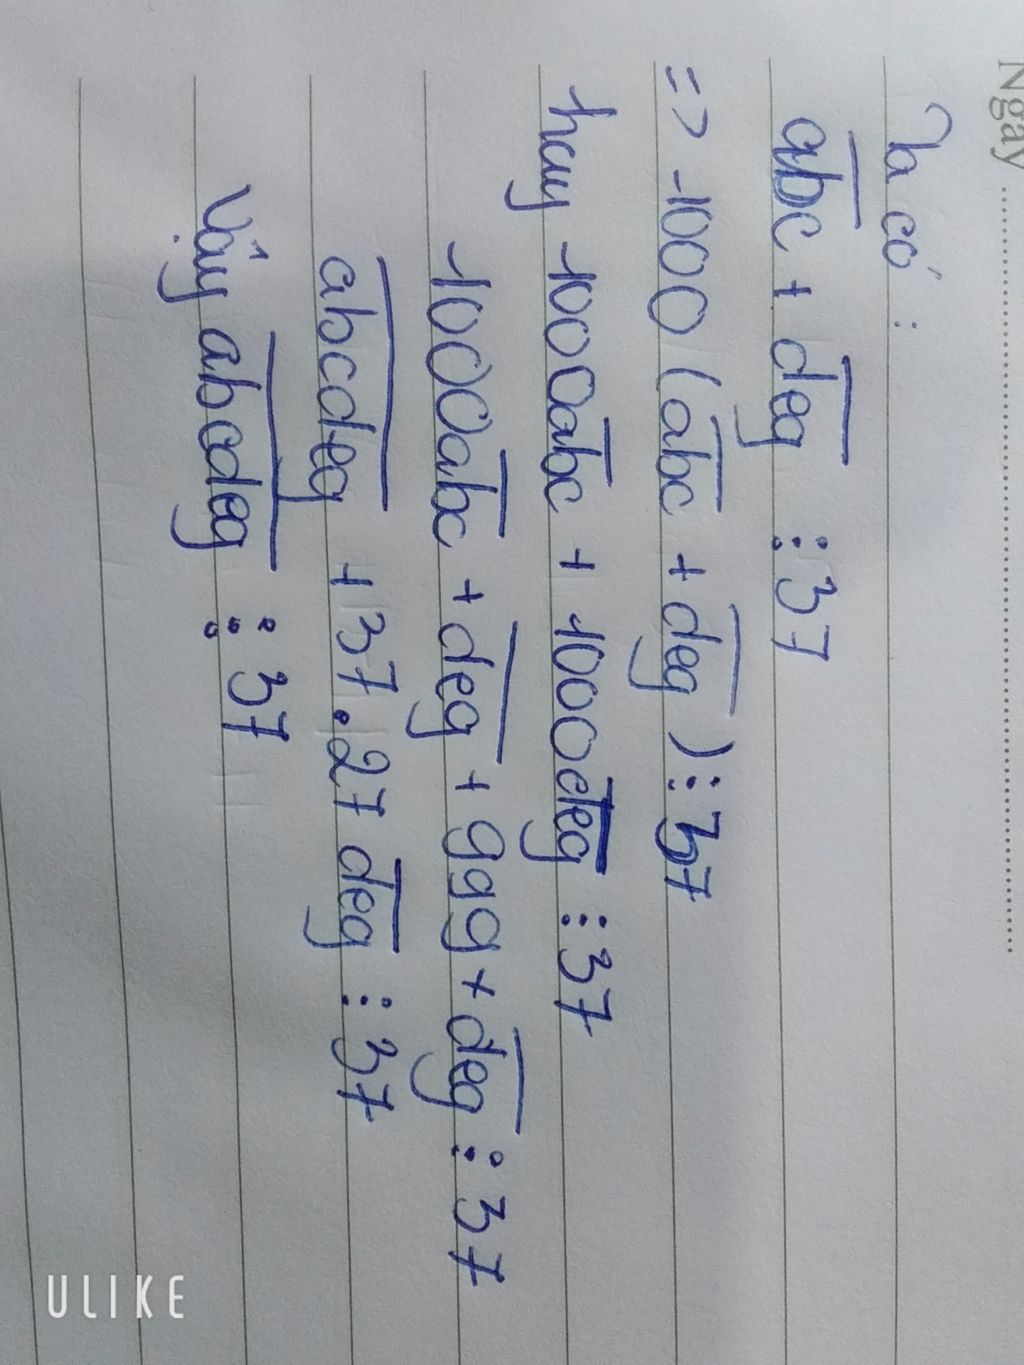 Ngày ........................
Ta có :
a̅b̅c̅ + d̅e̅g̅ ⋮ 37
=> 1000 (a̅b̅c̅ + d̅e̅g̅) ⋮ 37
hay 1000a̅b̅c̅ + 1000d̅e̅g̅ ⋮ 37
1000a̅b̅c̅ + d̅e̅g̅ + 999 × d̅e̅g̅ ⋮ 37
a̅b̅c̅d̅e̅g̅ + 37 . 27 d̅e̅g̅ ⋮ 37
Vậy a̅b̅c̅d̅e̅g̅ ⋮ 37
ULIKE